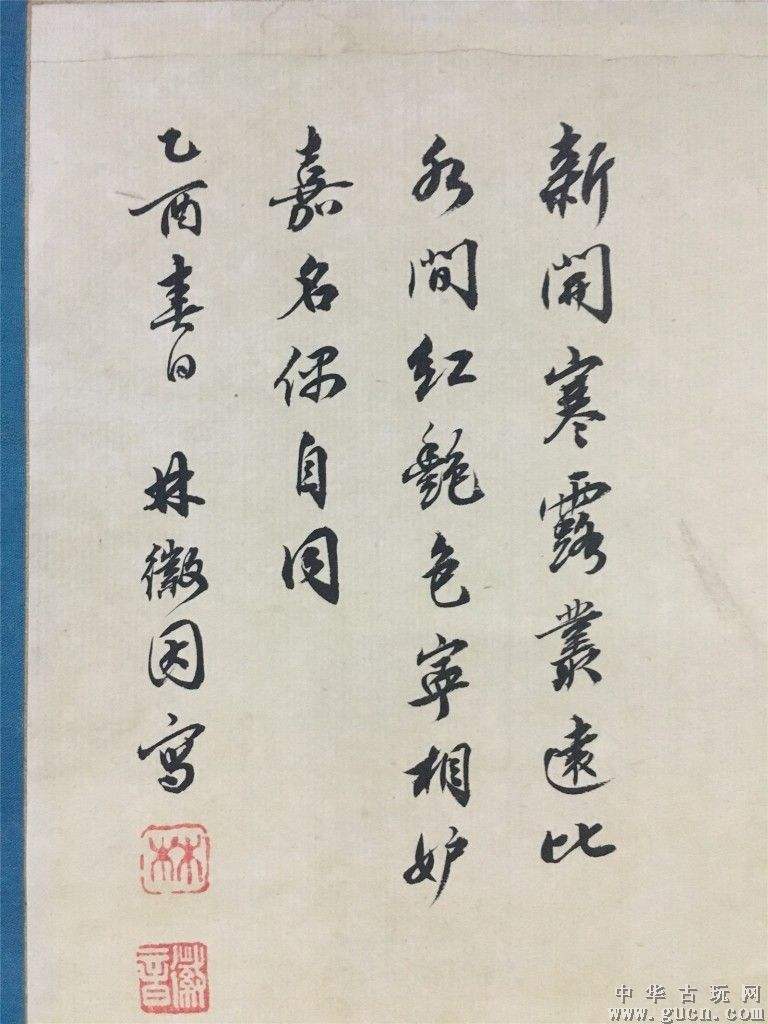 新開寒露叢遠比
水間紅艷色寧相妒
嘉名偶自同
乙酉春日 林徽因寫
林
徽音
中华古玩网
www.gucn.com